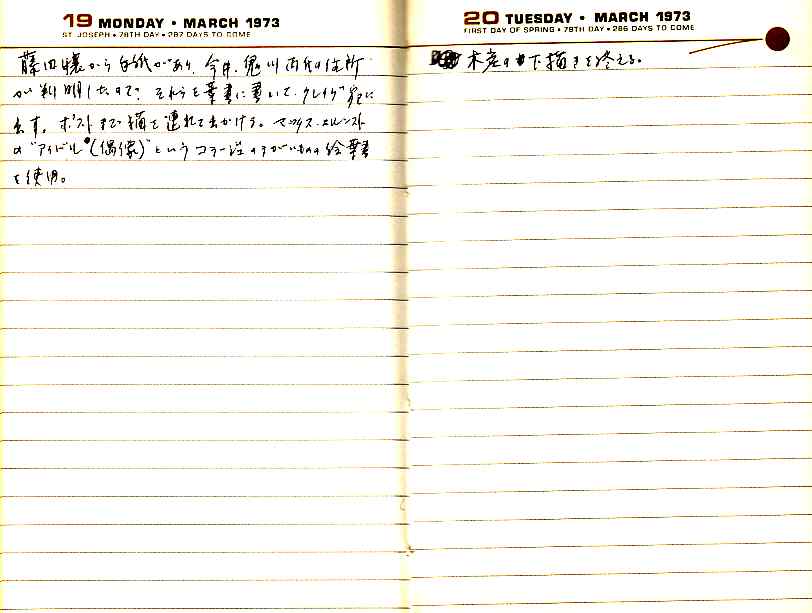 19 MONDAY • MARCH 1973
ST. JOSEPH • 78TH DAY • 287 DAYS TO COME
藤田嬢から手紙があり、今井、鬼川両氏の住所
が判明したので、それらを葉書に書いて、クレイグ宛に
出す。ポストまで猫を連れて出かける。マックス・エルンスト
の“アイドル”(偶像)”というコラージュの絵葉書
を使用。
20 TUESDAY • MARCH 1973
FIRST DAY OF SPRING • 79TH DAY • 286 DAYS TO COME
下描きを終える。